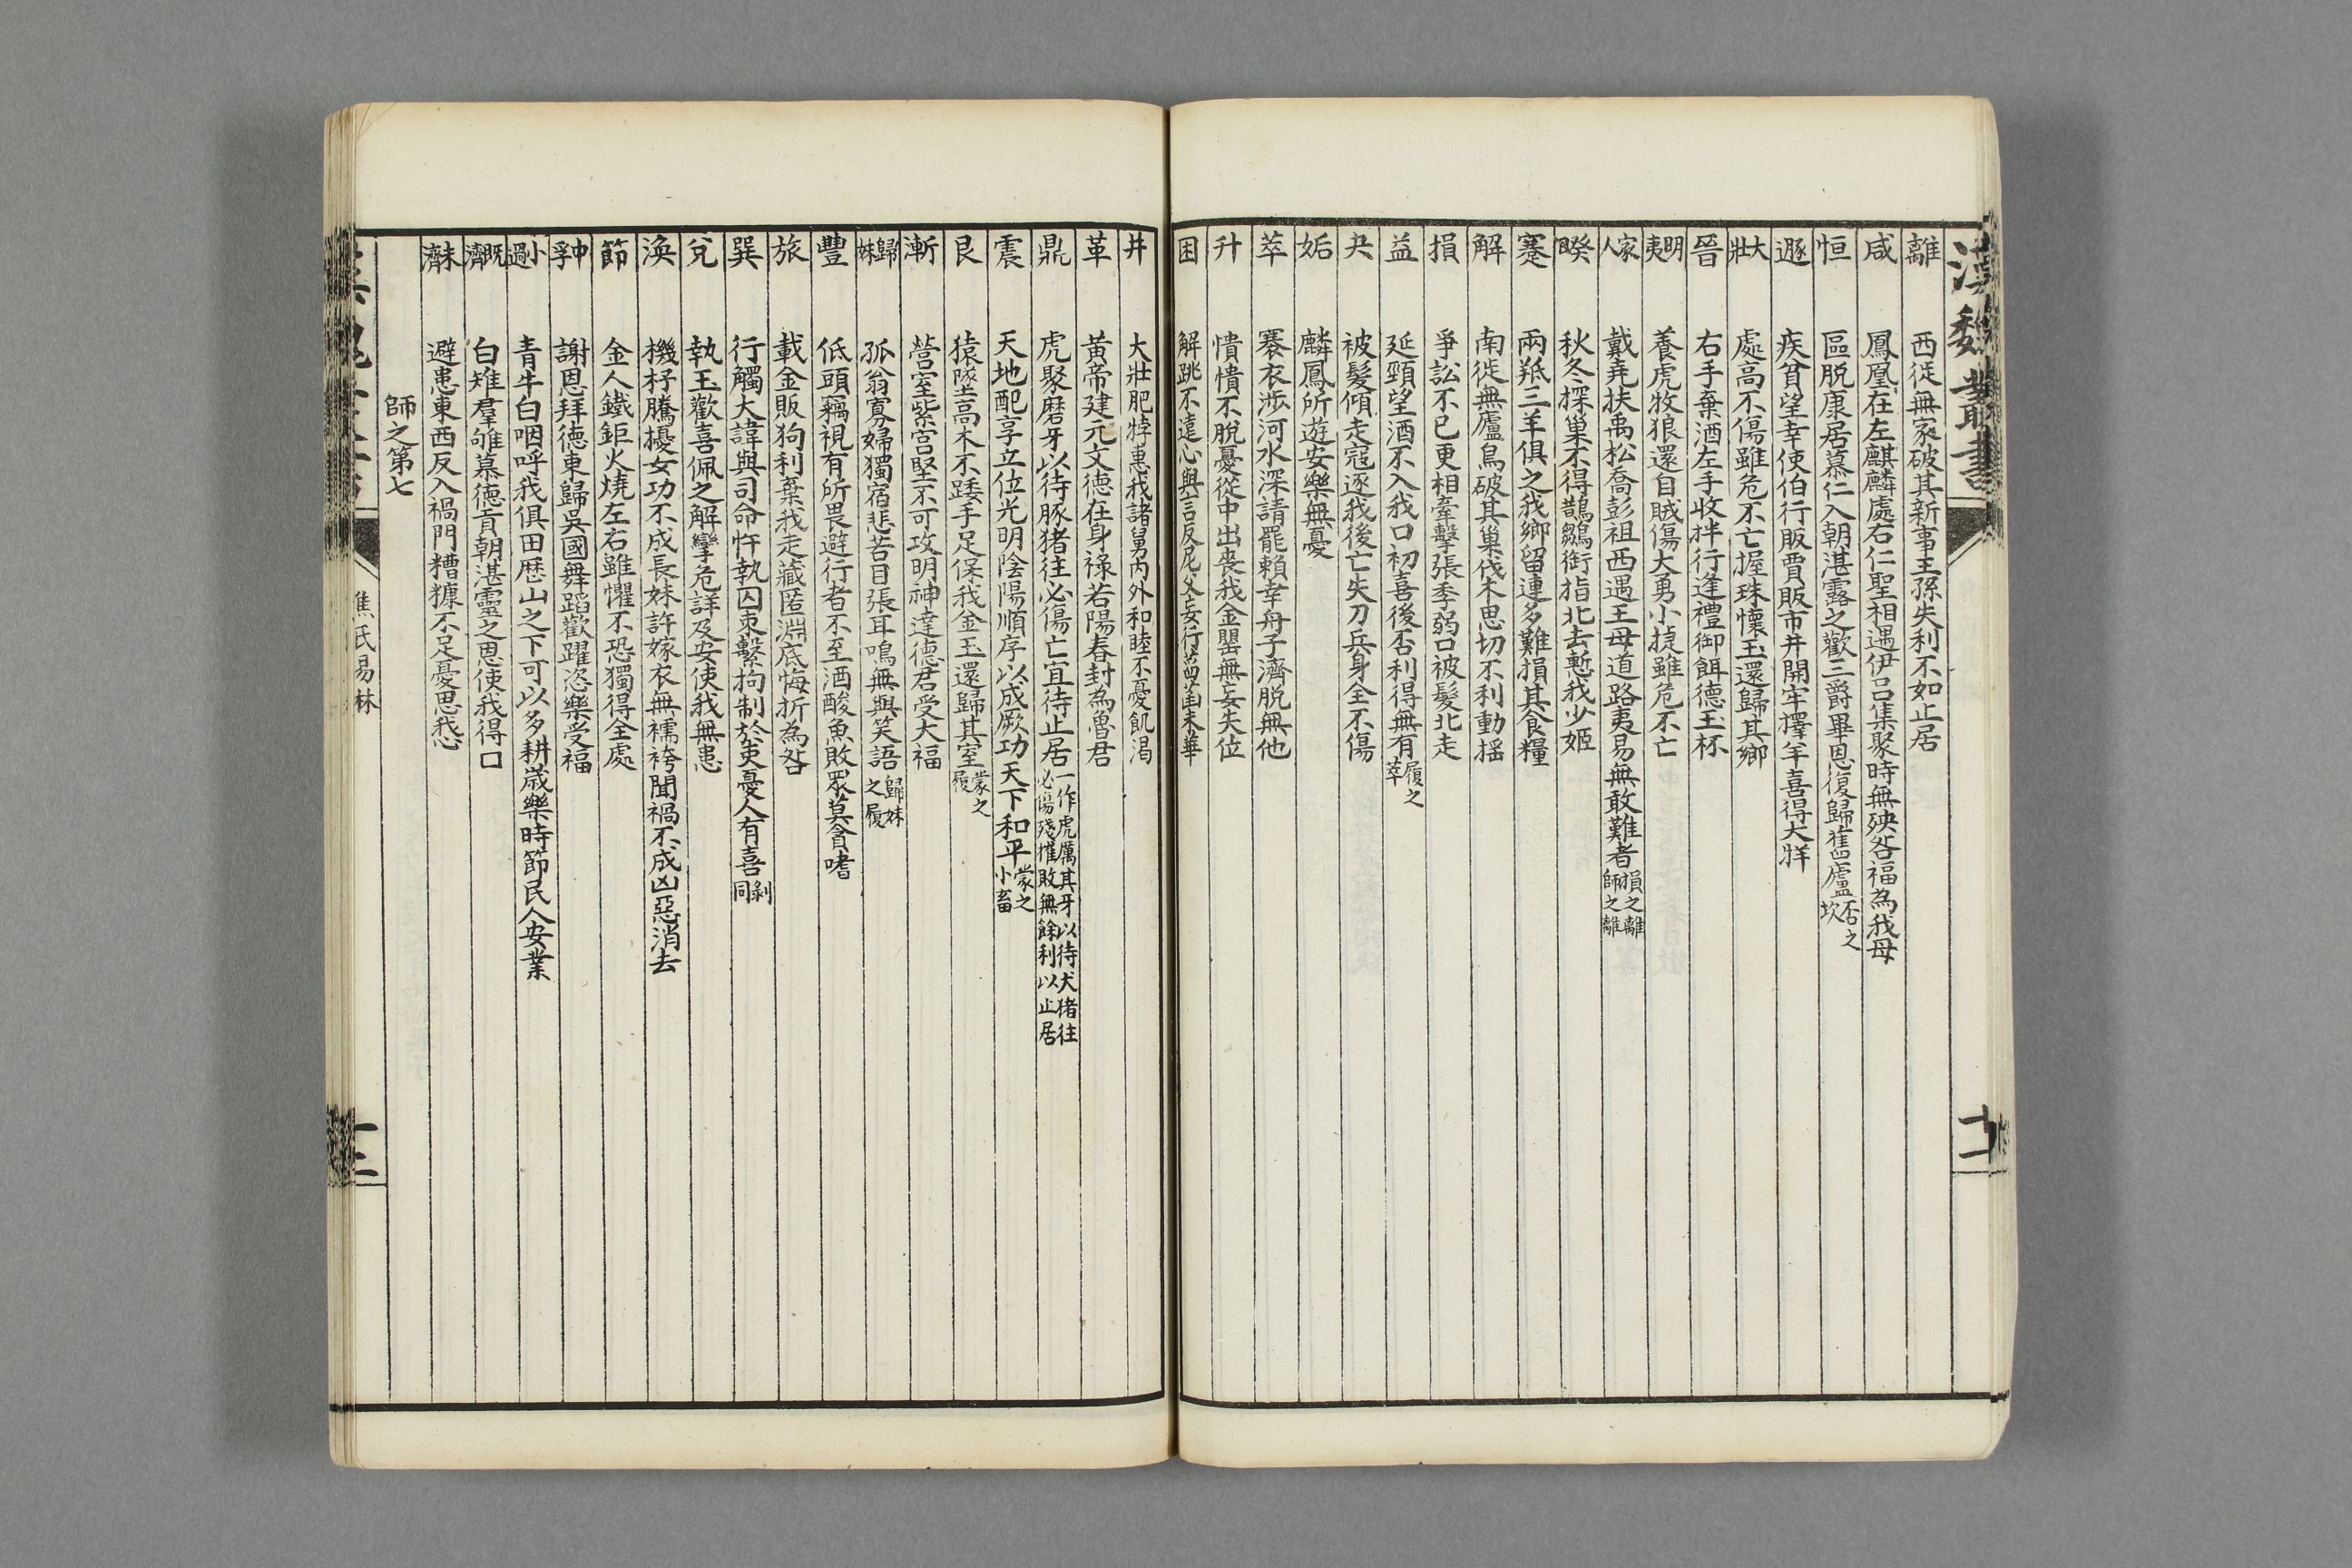 漢魏叢書
離 西徙無家破其新事王孫失利不如止居
咸 鳳凰在左麒麟處右仁聖相遇伊呂集聚時無殃咎福為我母
恒 區脱康居慕仁入朝湛露之歡三爵畢恩復歸舊廬否之坎
遯 疾貧望幸使伯行販賈販市井開牢擇羊喜得大牂
大壯 處高不傷雖危不亡握珠懷玉還歸其鄉
晉 右手棄酒左手收拌行逢禮御餌德玉杯
明夷 養虎牧狼還自賊傷大勇小捷雖危不亡
家人 戴堯扶禹松喬彭祖西遇王母道路夷易無敢難者損之離師之離
睽 秋冬探巢不得鵲鶵銜指北去慙我少姬
蹇 兩羝三羊俱之我鄉留連多難損其食糧
解 南徙無廬鳥破其巢伐木思切不利動搖
損 爭訟不已更相牽擊張季弱口被髮北走
益 延頸望酒不入我口初喜後否利得無有履之萃
夬 被髮傾走寇逐我後亡失刀兵身全不傷
姤 麟鳳所遊安樂無憂
萃 褰衣涉河水深請罷賴幸舟子濟脱無他
升 憒憒不脱憂從中出喪我金罌無妄失位
困 解跳不遠心與言反尼父妄行菑菑未華
井 大壯肥牸惠我諸舅內外和睦不憂飢渴
革 黃帝建元文德在身祿若陽春封為魯君
鼎 虎聚磨牙以待豚猪往必傷亡宜待止居一作虎厲其牙以待犬猪往必傷殘摧敗無餘利以止居
震 天地配享立位光明陰陽順序以成厥功天下和平蒙之小畜
艮 猿墜高木不踒手足保我金玉還歸其室蒙之履
漸 營室紫宮堅不可攻明神達德君受大福
歸妹 孤翁寡婦獨宿悲苦目張耳鳴無與笑語歸妹之履
豐 低頭竊視有所畏避行者不至酒酸魚敗眾莫貪嗜
旅 載金販狗利棄我走藏匿淵底悔折為咎
巽 行觸大諱與司命忤執囚束繫拘制於吏憂人有喜剝同
兌 執玉歡喜佩之解攣危詳及安使我無患
渙 機杼騰擾女功不成長妹許嫁衣無襦袴聞禍不成凶惡消去
節 金人鐵鉅火燒左右雖懼不恐獨得全處
中孚 謝恩拜德東歸吳國舞蹈歡躍恣樂受福
小過 青牛白咽呼我俱田歷山之下可以多耕歲樂時節民人安業
既濟 白雉羣雊慕德貢朝湛靈之恩使我得口
未濟 避患東西反入禍門糟糠不足憂思我心
師之第七
焦氏易林